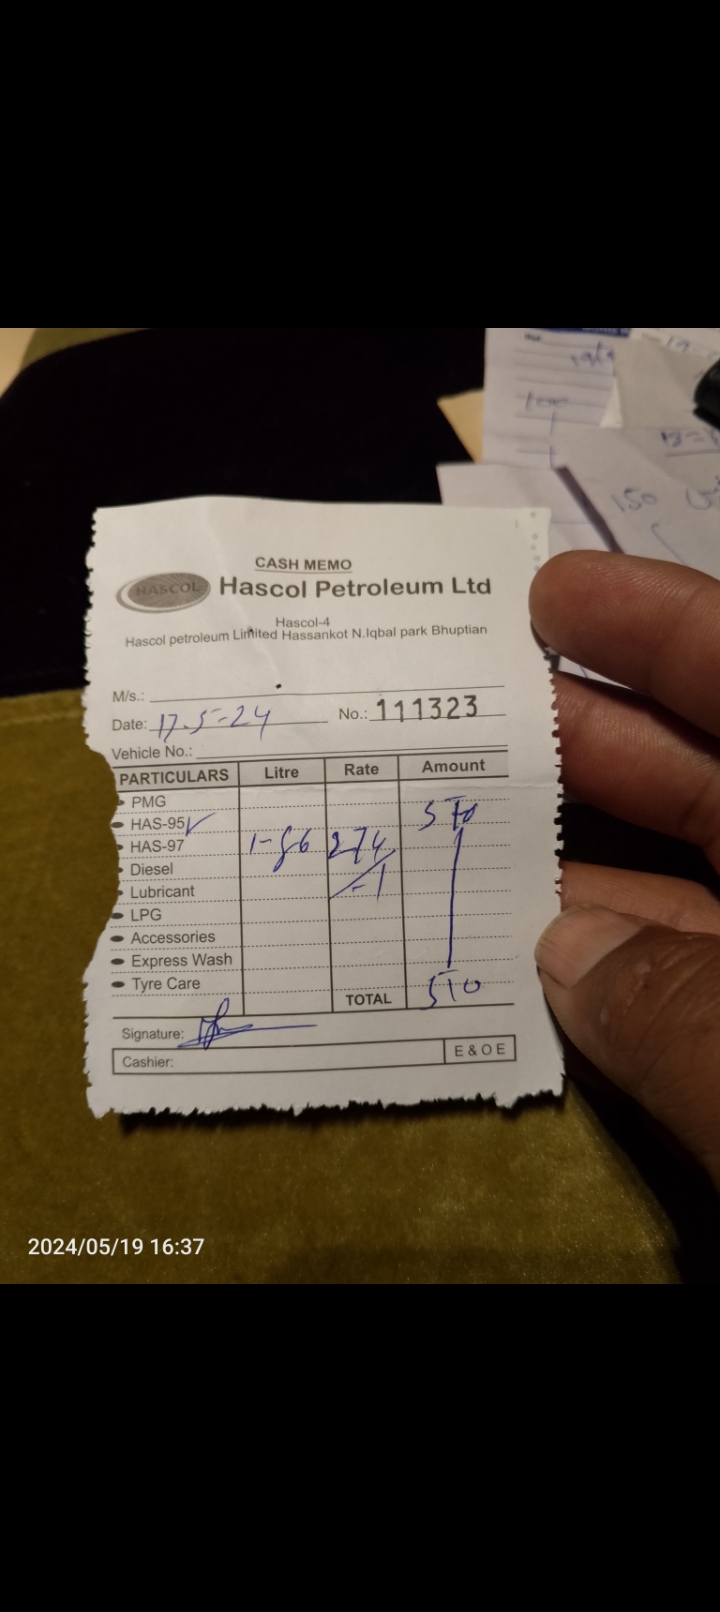 CASH MEMO
HASCOL Hascol Petroleum Ltd
Hascol-4
Hascol petroleum Limited Hassankot N.Iqbal park Bhuptian
M/s.:
Date: 17-5-24 No.: 111323
Vehicle No.:
PARTICULARS Litre Rate Amount
PMG 510
HAS-95 ✓
HAS-97 1-86 274
Diesel
Lubricant /-1
LPG
Accessories
Express Wash
Tyre Care
TOTAL 510
Signature:
Cashier: E & O E
100
150
2024/05/19 16:37